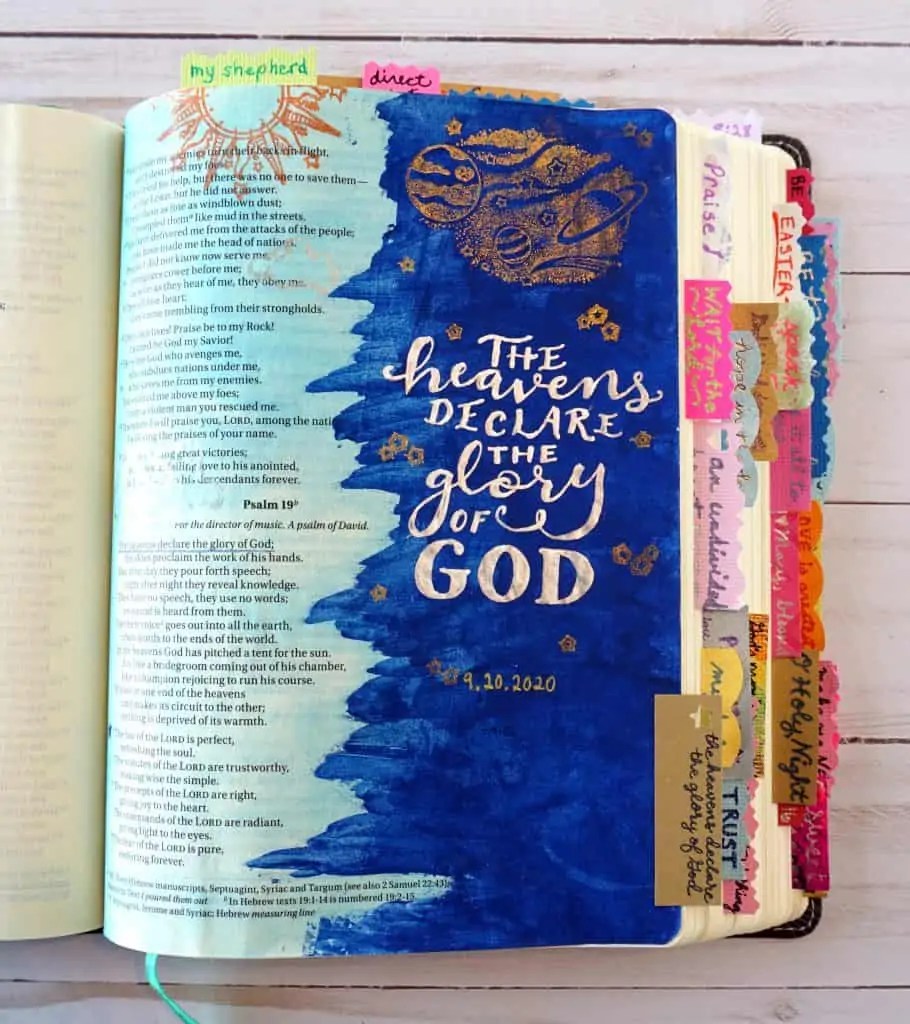 my shepherd
direct
enemies turn their backs in flight,
destroyed my foes.
for help, but there was no one to save them—
but he did not answer.
as fine as windblown dust;
them like mud in the streets.
delivered me from the attacks of the people;
have made me the head of nations.
did not know now serve me,
cower before me;
as they hear of me, they obey me.
lose heart;
trembling from their strongholds.
lives! Praise be to my Rock!
be God my Savior!
God who avenges me,
subdues nations under me,
saves me from my enemies.
me above my foes;
a violent man you rescued me.
I will praise you, LORD, among the nati
the praises of your name.
great victories;
love to his anointed,
his descendants forever.
Psalm 19b
For the director of music. A psalm of David.
The heavens declare the glory of God;
the skies proclaim the work of his hands.
day they pour forth speech;
night after night they reveal knowledge.
They have no speech, they use no words;
no sound is heard from them.
their voice goes out into all the earth,
their words to the ends of the world.
In the heavens God has pitched a tent for the sun.
like a bridegroom coming out of his chamber,
like a champion rejoicing to run his course.
at one end of the heavens
and makes its circuit to the other;
nothing is deprived of its warmth.
The law of the LORD is perfect,
refreshing the soul.
The statutes of the LORD are trustworthy,
making wise the simple.
The precepts of the LORD are right,
giving joy to the heart.
The commands of the LORD are radiant,
giving light to the eyes.
The fear of the LORD is pure,
enduring forever.
Hebrew manuscripts, Septuagint, Syriac and Targum (see also 2 Samuel 22:43)
I poured them out b In Hebrew texts 19:1-14 is numbered 19:2-15.
Septuagint, Jerome and Syriac; Hebrew measuring line
THE
heavens
DECLARE
THE
glory
OF
GOD
9.20.2020
Praise
WAIT for the
Lord
hope in
an undivided
the heavens declare
the glory of God
TRUST
EASTER
speak
Mary, blessed
O Holy Night
love is